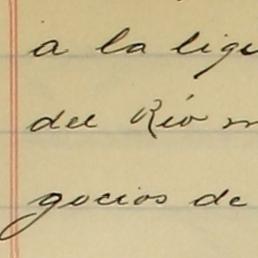 a la liqu
del Rio n
gocios de